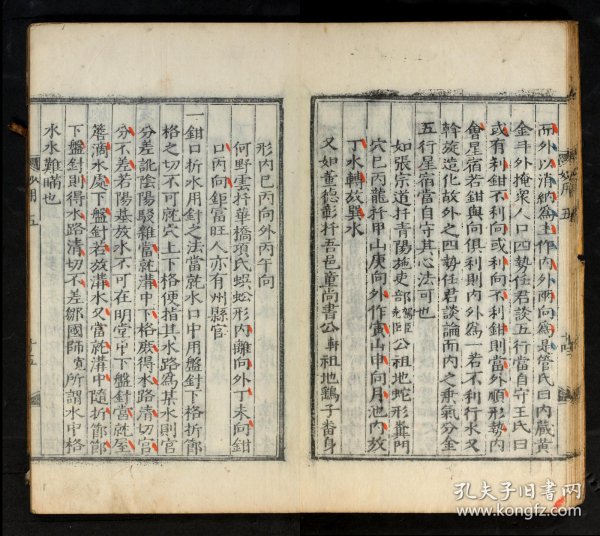 而外以消納為主作內外兩向為是管氏曰內藏黃
金斗外掩衆人口四勢任君談五行當自守王氏曰
或有利鉗不利向或利向不利鉗則當外順形勢內
會星宿若鉗與向俱利則內外為一若不利行水又
斡旋造化故外之四勢任君談論而內之乗氣分金
五行星宿當自守其心法可也
如張宗道扦青陽施吏部公祖地蛇形糞門
穴巳丙龍扦甲山庚向外作寅山申向月池內放
丁水轉放巽水
又如董德彰扦吾邑童尚書公軒祖地鷂子番身
形內巳丙向外丙午向
何野雲扦華橋項氏蜈蚣形內離向外丁未向鉗
口丙向鉅富旺人亦有州縣官
一鉗口折水用針之法當就水口中用盤針下格折節
格之切不可就穴上下格便指其水路為某水則官
分差訛陰陽駁雜當就溝中下格庶得水路清切官
分不差若陽基放水不可在明堂中下盤針當就屋
簷滴水處下盤針若放溝水又當就溝中隨折節節
下盤針則得水路清切不差鄒國師寬所謂水中格
水水難瞞也
妙用 五
十五
孔夫子旧书网
www.kongfz.com